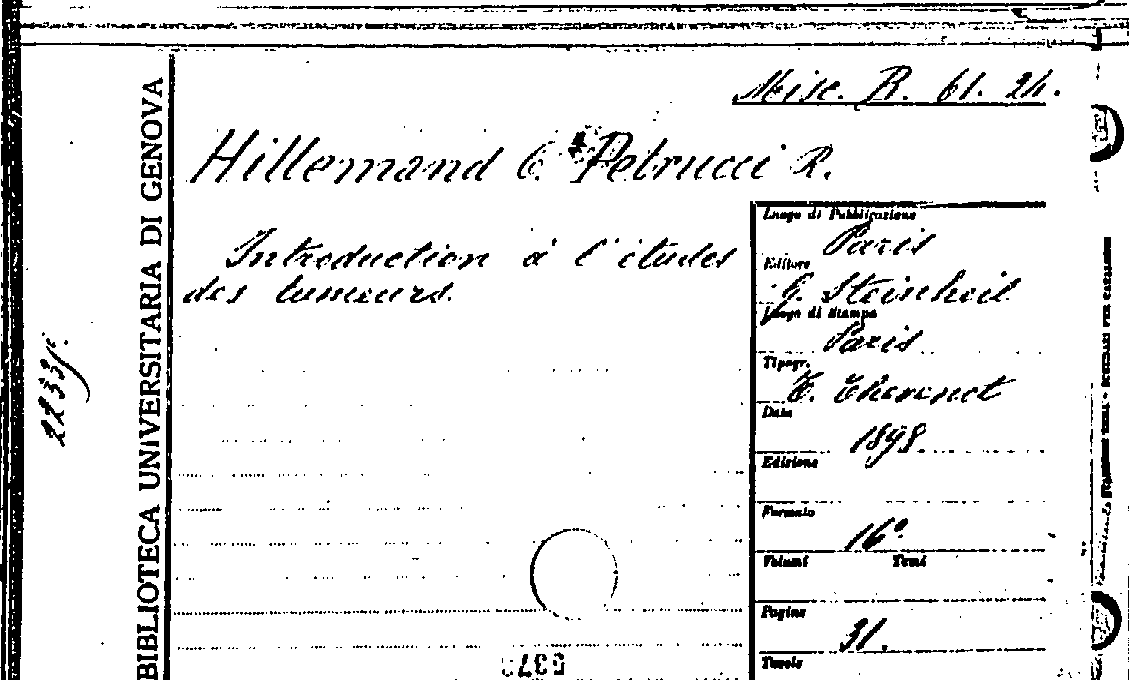 Misc. R. 61. 24.
Hillemand C. e Petrucci R.
Introduction à l'études
des tumeurs.
Luogo di Pubblicazione
Paris
Editore
G. Steinheil
Luogo di Stampa
Paris
Tipogr.
E. Thevenot
Data
1898.
Edizione
Formato
16°.
Volumi Tomi
Pagine
31.
Tavole
BIBLIOTECA UNIVERSITARIA DI GENOVA